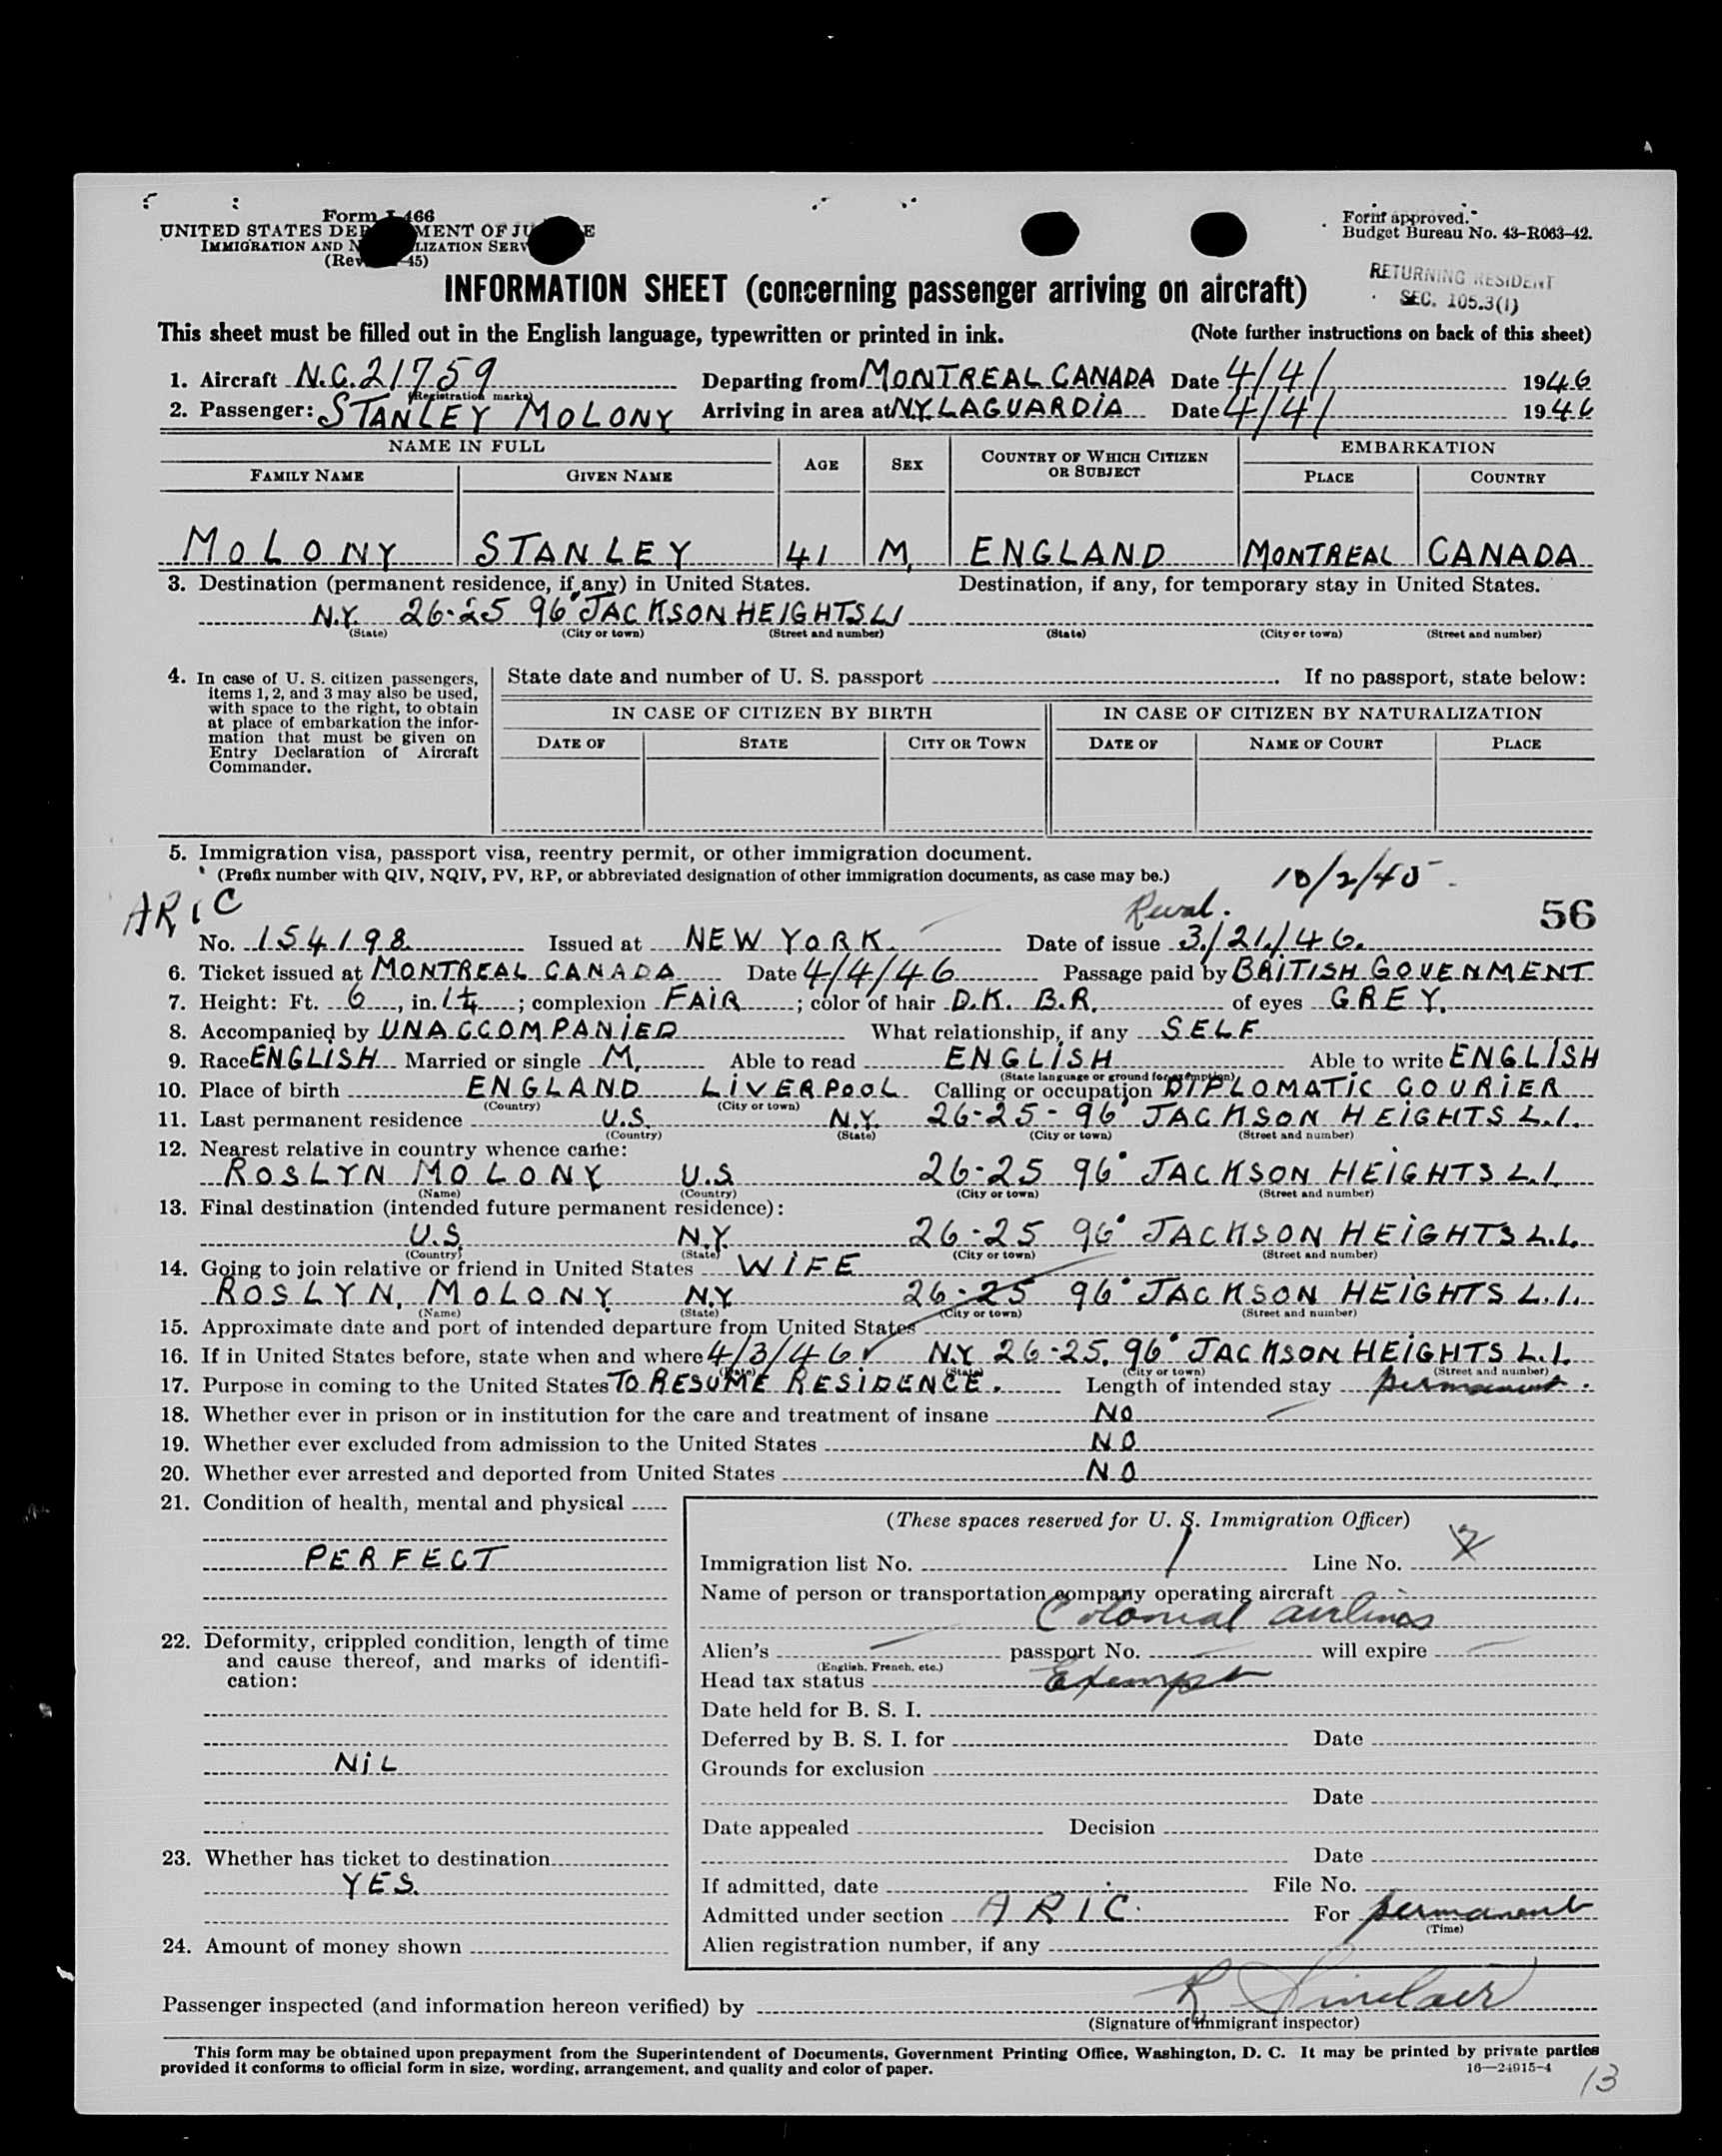 Form I-466
UNITED STATES DEP MENT OF JU E
IMMIGRATION AND N LIZATION SERV
(Rev 45)
Form approved.
Budget Bureau No. 43-R063-42.
INFORMATION SHEET (concerning passenger arriving on aircraft)
RETURNING RESIDENT
SEC. 105.3(1)
This sheet must be filled out in the English language, typewritten or printed in ink. (Note further instructions on back of this sheet)
1. Aircraft N.C.21759 Departing from MONTREAL CANADA Date 4/4/ 1946
(Registration marks)
2. Passenger: STANLEY MOLONY Arriving in area at N.Y. LAGUARDIA Date 4/4/ 1946
NAME IN FULL AGE SEX COUNTRY OF WHICH CITIZEN OR SUBJECT EMBARKATION
FAMILY NAME GIVEN NAME PLACE COUNTRY
MOLONY STANLEY 41 M. ENGLAND MONTREAL CANADA
3. Destination (permanent residence, if any) in United States. Destination, if any, for temporary stay in United States.
N.Y. 26-25 96° JACKSON HEIGHTS LI
(State) (City or town) (Street and number) (State) (City or town) (Street and number)
4. In case of U. S. citizen passengers,
items 1, 2, and 3 may also be used,
with space to the right, to obtain
at place of embarkation the infor-
mation that must be given on
Entry Declaration of Aircraft
Commander.
State date and number of U. S. passport . If no passport, state below:
IN CASE OF CITIZEN BY BIRTH IN CASE OF CITIZEN BY NATURALIZATION
DATE OF STATE CITY OR TOWN DATE OF NAME OF COURT PLACE
5. Immigration visa, passport visa, reentry permit, or other immigration document.
(Prefix number with QIV, NQIV, PV, RP, or abbreviated designation of other immigration documents, as case may be.) 10/2/45
ARIC 56
No. 154198 Issued at NEW YORK Date of issue 3/21/46.
6. Ticket issued at MONTREAL CANADA Date 4/4/46 Passage paid by BRITISH GOVENMENT
7. Height: Ft. 6, in. 1¼; complexion FAIR; color of hair D.K. B.R. of eyes GREY.
8. Accompanied by UNACCOMPANIED What relationship, if any SELF
9. Race ENGLISH Married or single M. Able to read ENGLISH Able to write ENGLISH
(State language or ground for exemption)
10. Place of birth ENGLAND LIVERPOOL Calling or occupation DIPLOMATIC COURIER
(Country) (City or town)
11. Last permanent residence U.S. N.Y. 26-25-96° JACKSON HEIGHTS L.I.
(Country) (State) (City or town) (Street and number)
12. Nearest relative in country whence came:
ROSLYN MOLONY U.S 26-25 96° JACKSON HEIGHTS L.I.
(Name) (Country) (City or town) (Street and number)
13. Final destination (intended future permanent residence):
U.S. N.Y. 26-25 96° JACKSON HEIGHTS L.I.
(Country) (State) (City or town) (Street and number)
14. Going to join relative or friend in United States WIFE
ROSLYN. MOLONY. N.Y 26-25 96° JACKSON HEIGHTS L.I.
(Name) (State) (City or town) (Street and number)
15. Approximate date and port of intended departure from United States
16. If in United States before, state when and where 4/3/46 N.Y. 26-25. 96° JACKSON HEIGHTS L.I.
(Date) (State) (City or town) (Street and number)
17. Purpose in coming to the United States TO RESUME RESIDENCE. Length of intended stay permanent.
18. Whether ever in prison or in institution for the care and treatment of insane NO
19. Whether ever excluded from admission to the United States NO
20. Whether ever arrested and deported from United States NO
21. Condition of health, mental and physical
PERFECT
22. Deformity, crippled condition, length of time
and cause thereof, and marks of identifi-
cation:
NIL
23. Whether has ticket to destination
YES.
24. Amount of money shown
(These spaces reserved for U. S. Immigration Officer)
Immigration list No. 1 Line No.
Name of person or transportation company operating aircraft
Colonial airlines
Alien's passport No. will expire
(English, French, etc.)
Head tax status Exempt
Date held for B. S. I.
Deferred by B. S. I. for Date
Grounds for exclusion
Date
Date appealed Decision
Date
If admitted, date File No.
Admitted under section ARIC. For permanent
(Time)
Alien registration number, if any
Passenger inspected (and information hereon verified) by R Sinclair
(Signature of immigrant inspector)
This form may be obtained upon prepayment from the Superintendent of Documents, Government Printing Office, Washington, D. C. It may be printed by private parties
provided it conforms to official form in size, wording, arrangement, and quality and color of paper. 16—24915-4
13